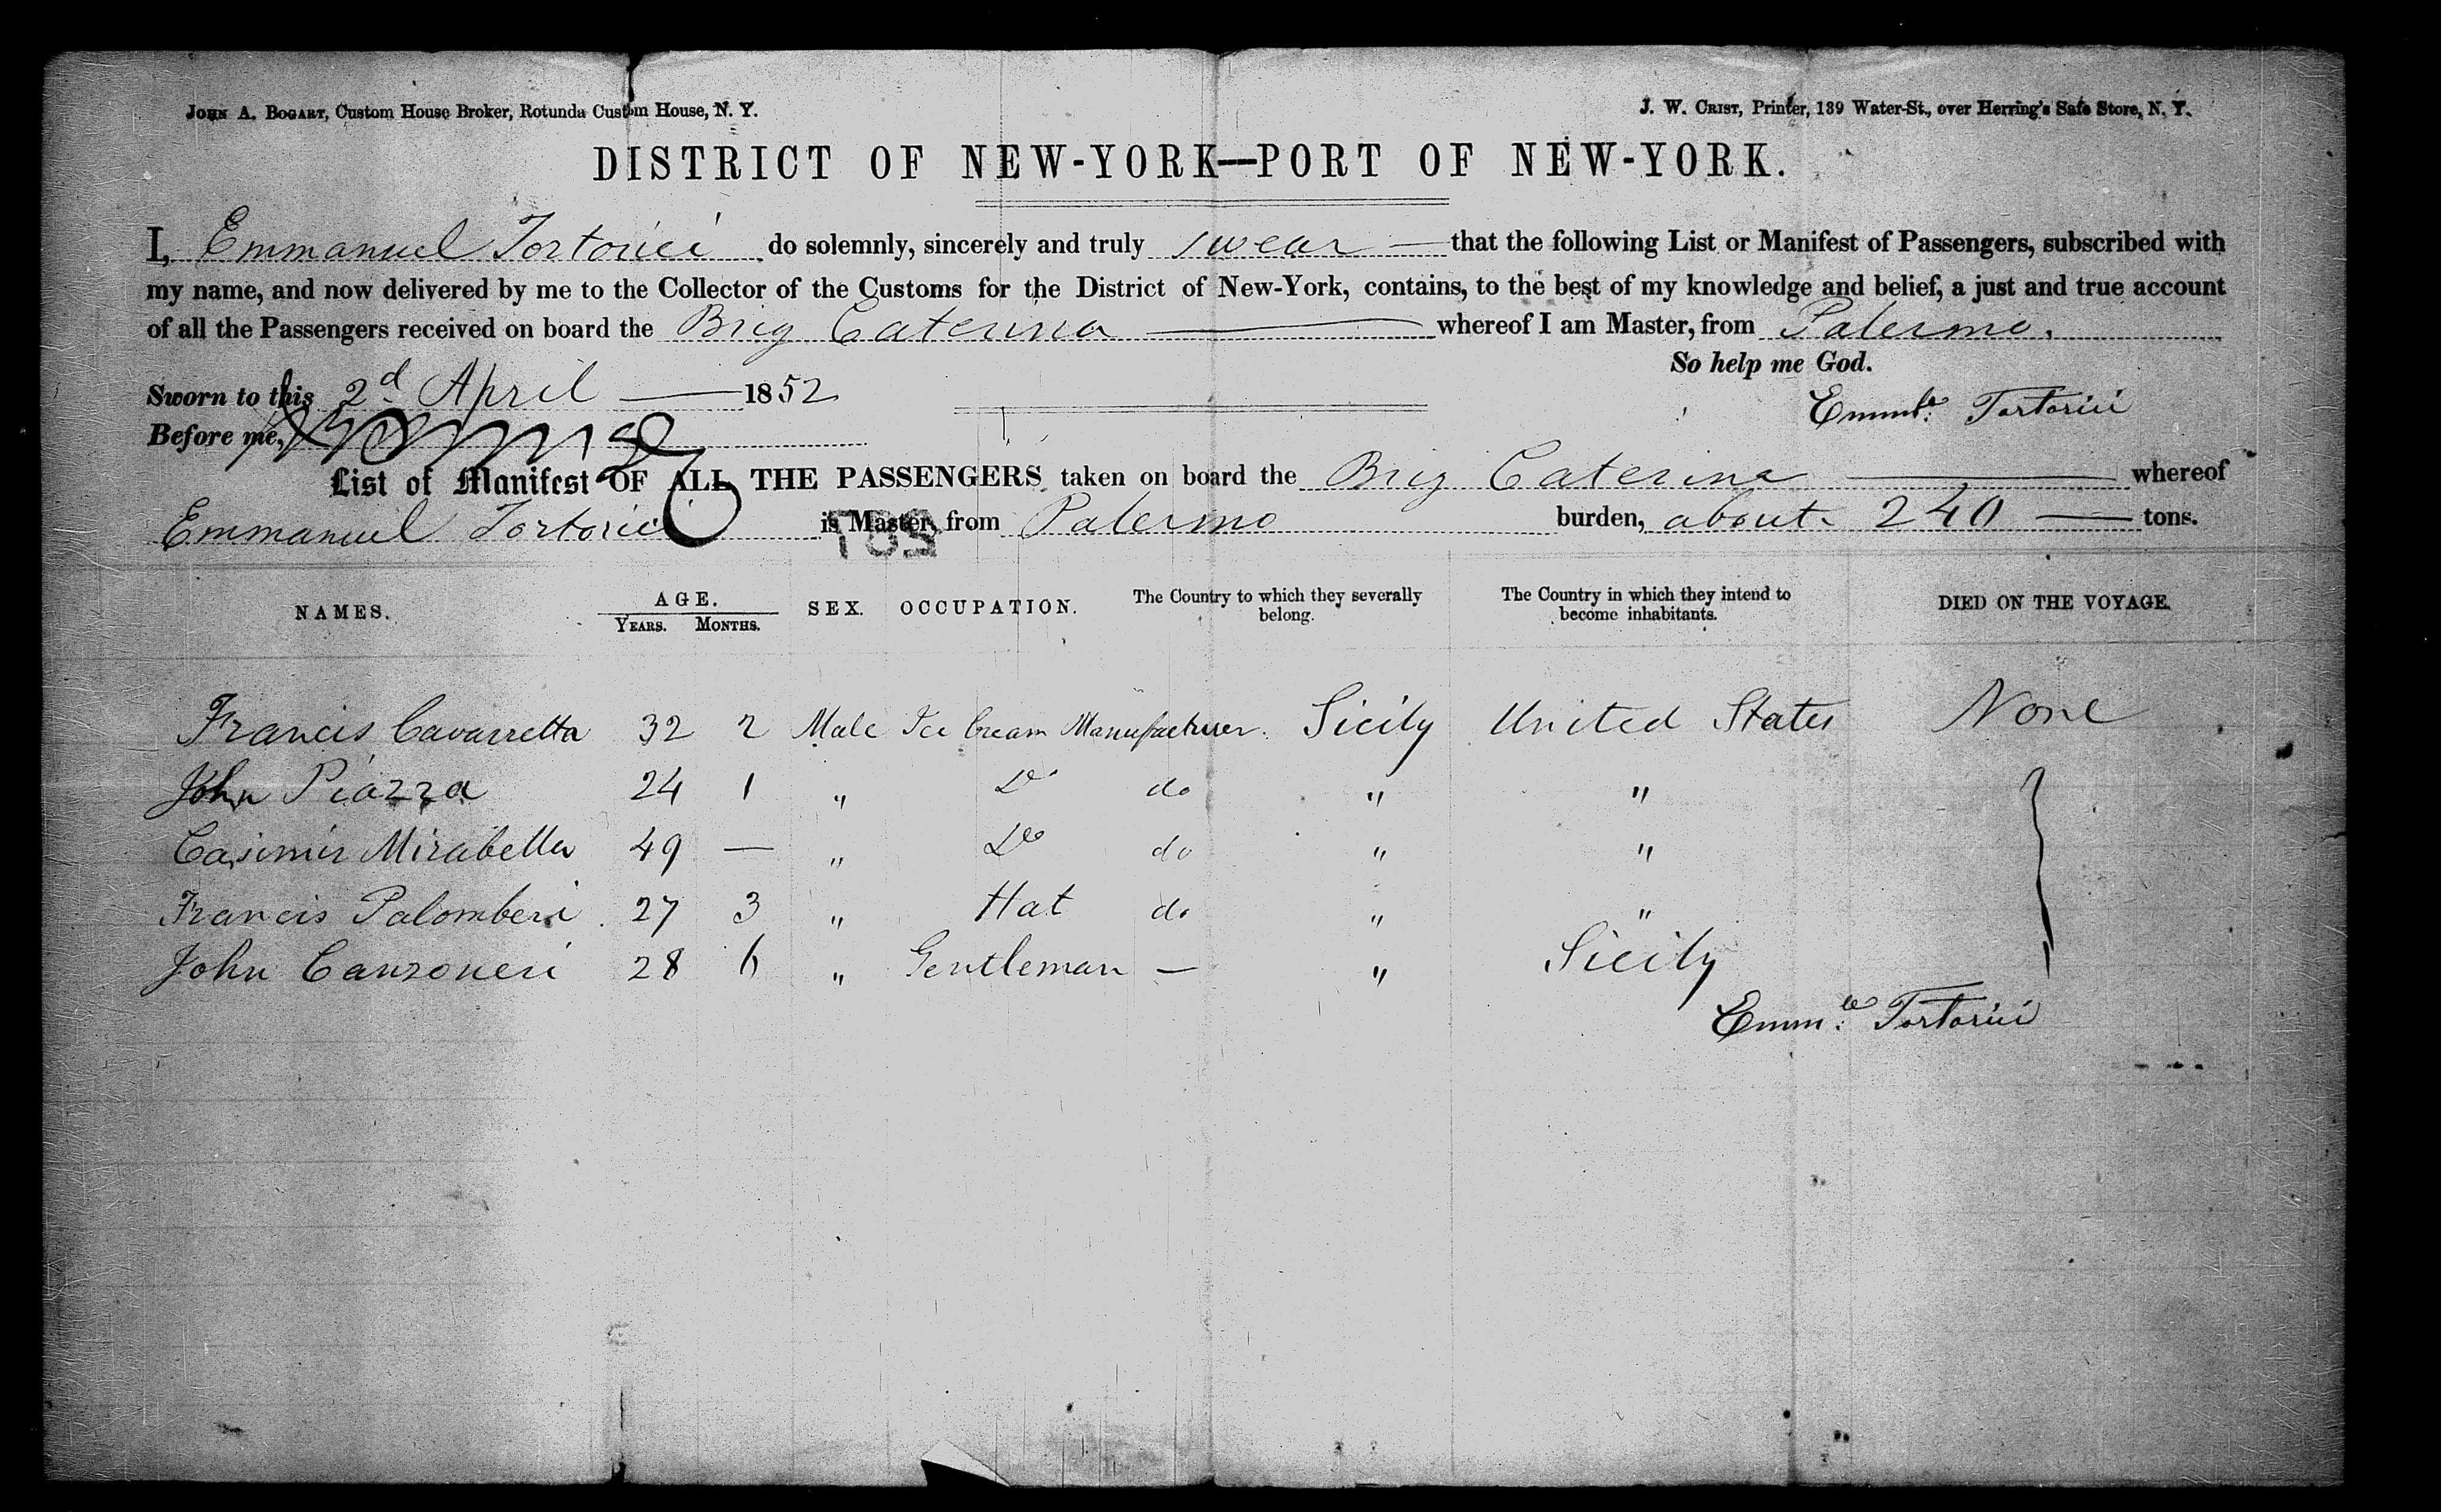 JOHN A. BOGART, Custom House Broker, Rotunda Custom House, N. Y.
J. W. CRIST, Printer, 139 Water-St., over Herring's Safe Store, N. Y.
DISTRICT OF NEW-YORK—PORT OF NEW-YORK.
I, Emmanuel Tortorici do solemnly, sincerely and truly swear — that the following List or Manifest of Passengers, subscribed with
my name, and now delivered by me to the Collector of the Customs for the District of New-York, contains, to the best of my knowledge and belief, a just and true account
of all the Passengers received on board the Brig Caterina — whereof I am Master, from Palermo.
So help me God.
Sworn to this 2d April — 1852
Emmle Tortorici
Before me,
List of Manifest OF ALL THE PASSENGERS taken on board the Brig Caterina — whereof
Emmanuel Tortorici is Master, from Palermo burden, about 240 — tons.
NAMES. AGE. SEX. OCCUPATION. The Country to which they severally belong. The Country in which they intend to become inhabitants. DIED ON THE VOYAGE.
YEARS. MONTHS.
Francis Cavarretta 32 2 Male Ice Cream Manufacturer. Sicily United States None
John Piazza 24 1 " Do do " "
Casimir Mirabella 49 — " Do do " "
Francis Palomberi 27 3 " Hat do " "
John Canzoneri 28 6 " Gentleman — " Sicily
Emmle Tortorici